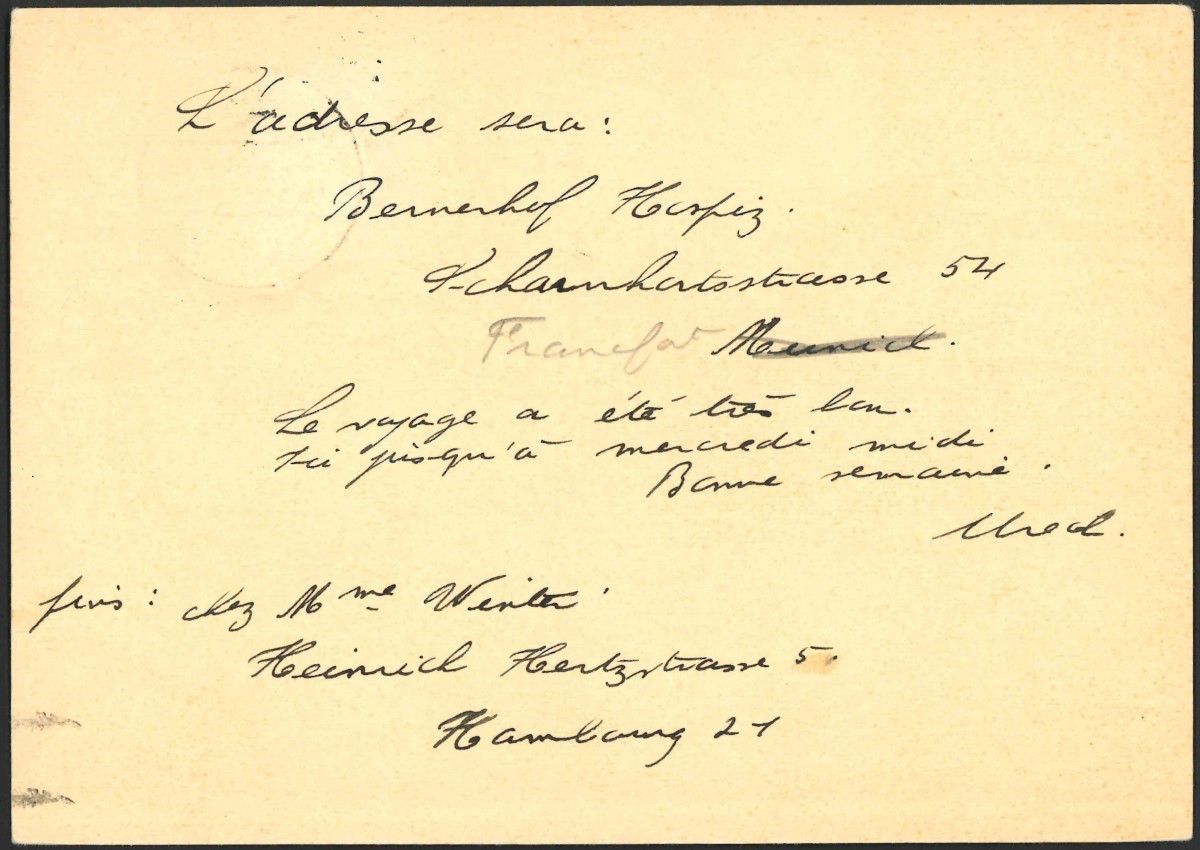 L'adresse sera:
Bernerhof Hospiz.
Scharnhorststrasse 54
Francfort Munich.
Le voyage a été très bon.
Ici jusqu'à mercredi midi
Bonne semaine.
puis: chez Mme Winter
Heinrich Hertzstrasse 5.
Hambourg 21